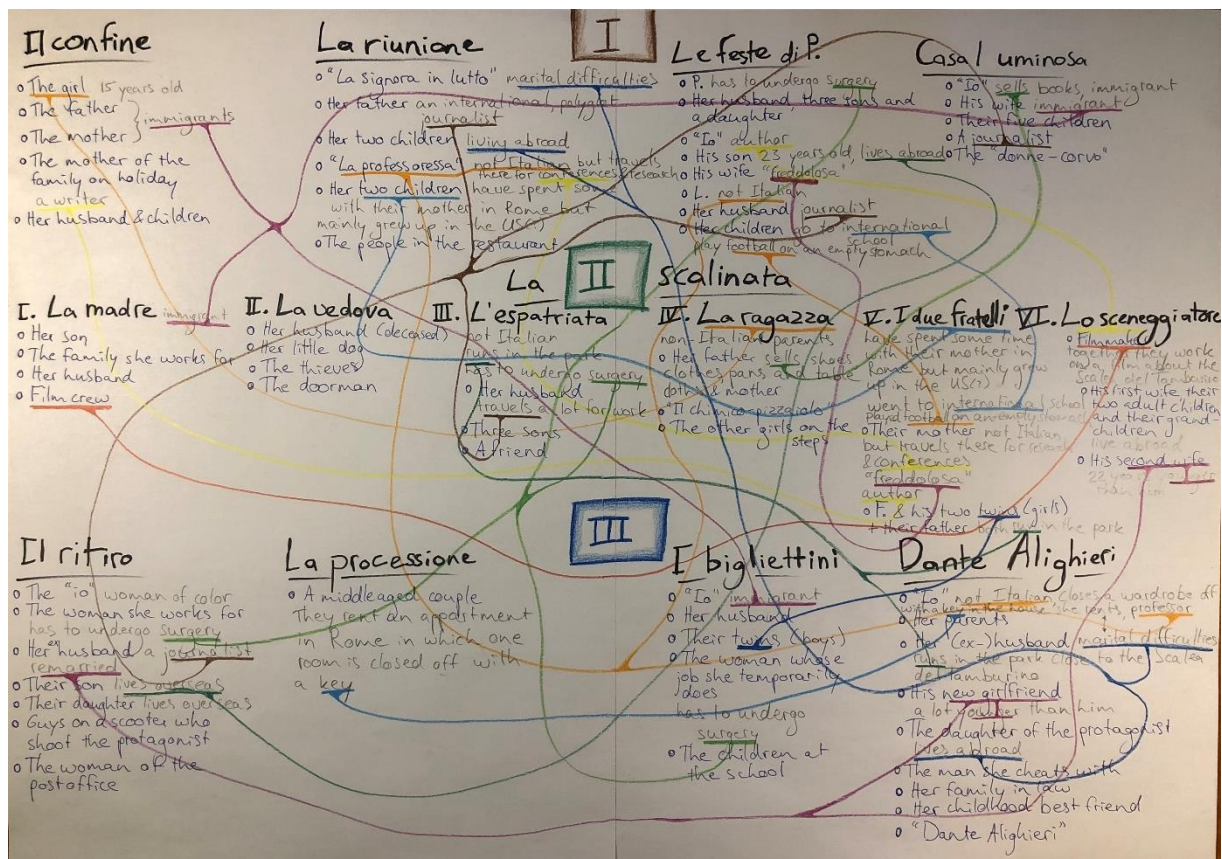 I
Il confine
The girl 15 years old
The father
The mother
immigrants
The mother of the
family on holiday
a writer
Her husband & children
La riunione
"La signora in lutto" marital difficulties
Her father an international, polyglot
journalist
Her two children living abroad
"La professoressa" not Italian but travels
there for conferences & research
Her two children have spent some
with their mother in Rome but
mainly grew up in the US(?)
The people in the restaurant
Le feste di P.
P. has to undergo surgery
Her husband, three sons and
a daughter
"Io" author
His son 23 years old, lives abroad
His wife "freddolosa"
L. not Italian
Her husband journalist
Her children go to international
school
play football on an empty stomach
Casa luminosa
"Io" sells books, immigrant
His wife immigrant
Their five children
A journalist
The "donne-corvo"
II
La scalinata
I. La madre immigrant
Her son
The family she works for
Her husband
Film crew
II. La vedova
Her husband (deceased)
Her little dog
The thieves
The doorman
III. L'espatriata
not Italian
runs in the park
has to undergo surgery
Her husband
travels a lot for work
Three sons
A friend
IV. La ragazza
non Italian parents
Her father sells shoes
clothes pans and table
cloths & mother
"Il chimico-pizzaiolo"
The other girls on the
steps
V. I due fratelli
have spent some time
with their mother in
Rome but mainly grew
up in the US(?)
went to international school
played football on an empty stomach
Their mother not Italian
but travels there for research
& conferences
"freddolosa"
author
F. & his two twins (girls)
+ their father both run in the park
VI. Lo sceneggiatore
Filmmaker
together they work
on a film about the
Scalea del Tamburino
His first wife their
two adult children
and their grand-
children
live abroad
His second wife
22 years younger
than him
III
Il ritiro
The "io" woman of color
The woman she works for
has to undergo surgery
Her ex husband a journalist
remarried
Their son lives overseas
Their daughter lives overseas
Guys on a scooter who
shoot the protagonist
The woman of the
postoffice
La processione
A middleaged couple
They rent an appartment
in Rome in which one
room is closed off with
a key
I bigliettini
"Io" immigrant
Her husband
Their twins (boys)
The woman whose
job she temporarily
does
has to undergo
surgery
The children at
the school
Dante Alighieri
"Io" not Italian closes a wardrobe off
with a key in the house she rents, professor
Her parents
Her (ex-)husband marital difficulties
runs in the park close to the Scalea
del Tamburino
His new girlfriend
a lot younger than him
The daughter of the protagonist
lives abroad
The man she cheats with
Her family in law
Her childhood best friend
"Dante Alighieri"